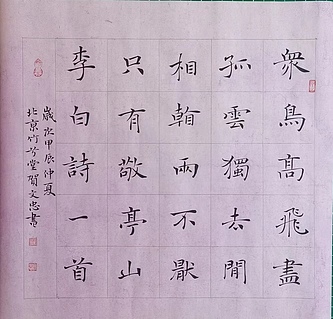 衆鳥髙飛盡
孤雲獨去閒
相看兩不厭
只有敬亭山
李白詩一首
歲次甲辰仲夏
北京竹堂賈文忠書